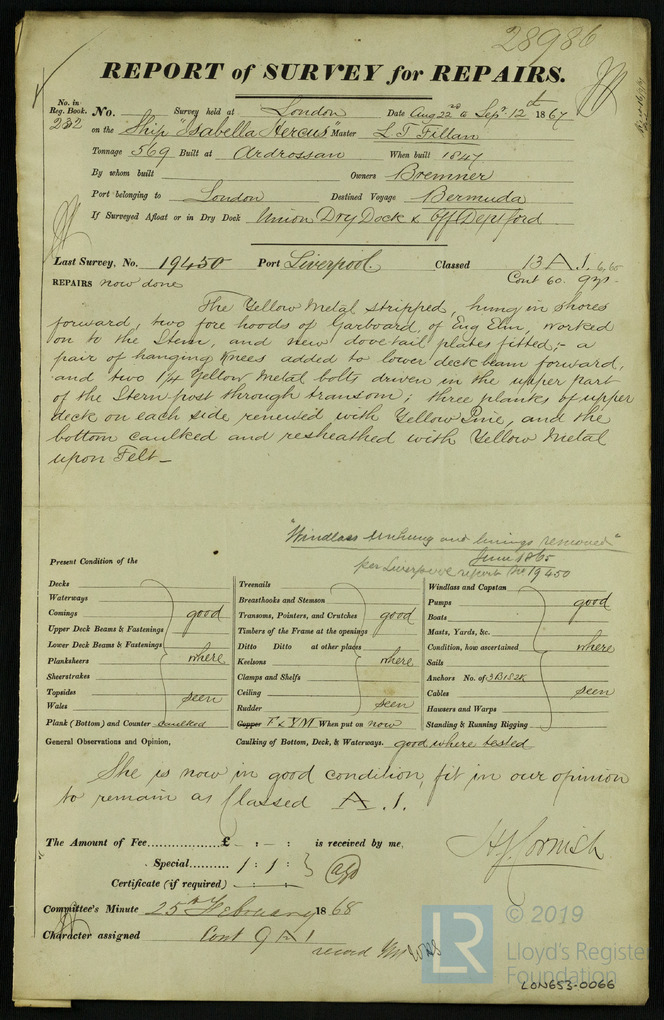 28986
REPORT of SURVEY for REPAIRS.
No. in Reg. Book. No. Survey held at London Date Aug 22nd to Sepr. 12th 1867
232 on the Ship "Isabella Hercus" Master L T Fillan
Tonnage 569 Built at Ardrossan When built 1847
By whom built Owners Bremner
Port belonging to London Destined Voyage Bermuda
If Surveyed Afloat or in Dry Dock Union Dry Dock & off Deptford
Last Survey, No. 19450 Port Liverpool. Classed 13 A.1. 6,60
Cont 60. 9yrs.
REPAIRS now done
The Yellow Metal stripped, hung in shores
forward, two fore hoods of Garboard, of Eng Elm, worked
on to the Stem, and new dovetail plates fitted;- a
pair of hanging knees added to lower deck beam forward,
and two 1¼ Yellow Metal bolts driven in the upper part
of the Stern post through transom; three planks of upper
deck on each side renewed with Yellow Pine, and the
bottom caulked and resheathed with Yellow Metal
upon Felt_
"Windlass unhung and linings removed"
June 1865
per Liverpool report No 19450
Present Condition of the
Decks
Waterways
Comings
Upper Deck Beams & Fastenings
Lower Deck Beams & Fastenings
Planksheers
Sheerstrakes
Topsides
Wales
good
where
seen
Plank (Bottom) and Counter caulked
Treenails
Breasthooks and Stemson
Transoms, Pointers, and Crutches
Timbers of the Frame at the openings
Ditto Ditto at other places
Keelsons
Clamps and Shelfs
Ceiling
Rudder
good
where
seen
Copper F & YM When put on now
Windlass and Capstan
Pumps
Boats
Masts, Yards, &c.
Condition, how ascertained
Sails
Anchors No. of 3B1S2K
Cables
Hawsers and Warps
Standing & Running Rigging
good
where
seen
General Observations and Opinion, Caulking of Bottom, Deck, & Waterways. good where tested
She is now in good condition, fit in our opinion
to remain as Classed A.1.
The Amount of Fee £ - : - : is received by me,
Special 1 : 1 :
Certificate (if required)
H J Cornish
Committee's Minute 25th February 1868
Character assigned Cont 9 A 1
record
LR © 2019
Lloyd's Register
Foundation
LON653-0066